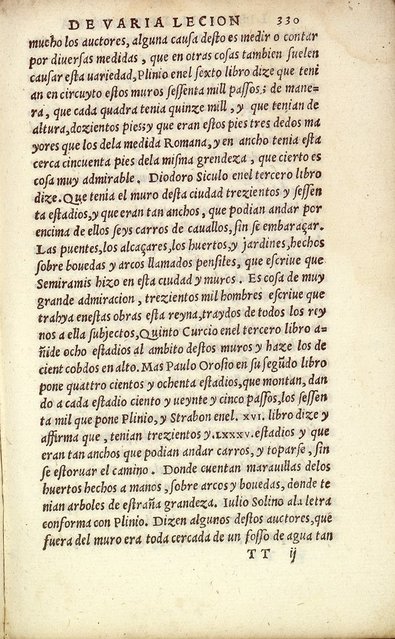 DE VARIA LECION 330
mucho los auctores, alguna causa desto es medir o contar
por diuersas medidas, que en otras cosas tambien suelen
causar esta variedad, Plinio enel sexto libro dize que teni
an en circuyto estos muros sessenta mill passos; de mane-
ra, que cada quadra tenia quinze mill, y que tenian de
altura, dozientos pies; y que eran estos pies tres dedos ma
yores que los dela medida Romana, y en ancho tenia esta
cerca cincuenta pies dela misma grendeza, que cierto es
cosa muy admirable. Diodoro Siculo enel tercero libro
dize. Que tenia el muro desta ciudad trezientos y sessen
ta estadios, y que eran tan anchos, que podian andar por
encima de ellos seys carros de cauallos, sin se embaraçar.
Las puentes, los alcaçares, los huertos, y jardines, hechos
sobre bouedas y arcos llamados pensiles, que escriue que
Semiramis hizo en esta ciudad y muros. Es cosa de muy
grande admiracion, trezientos mil hombres escriue que
trahya enestas obras esta reyna, traydos de todos los rey
nos a ella subjectos, Quinto Curcio enel tercero libro a-
ñide ocho estadios al ambito destos muros y haze los de
cient cobdos en alto. Mas Paulo Orosio en su segũdo libro
pone quattro cientos y ochenta estadios, que montan, dan
do a cada estadio ciento y ueynte y cinco passos, los sessen
ta mil que pone Plinio, y Strabon enel. XVI. libro dize y
affirma que, tenian trezientos y. LXXXV. estadios y que
eran tan anchos que podian andar carros, y toparse, sin
se estoruar el camino. Donde cuentan marauillas delos
huertos hechos a manos, sobre arcos y bouedas, donde te
nian arboles de estraña grandeza. Iulio Solino ala letra
conforma con Plinio. Dizen algunos destos auctores, que
fuera del muro era toda cercada de un fosso de agua tan
TT ij